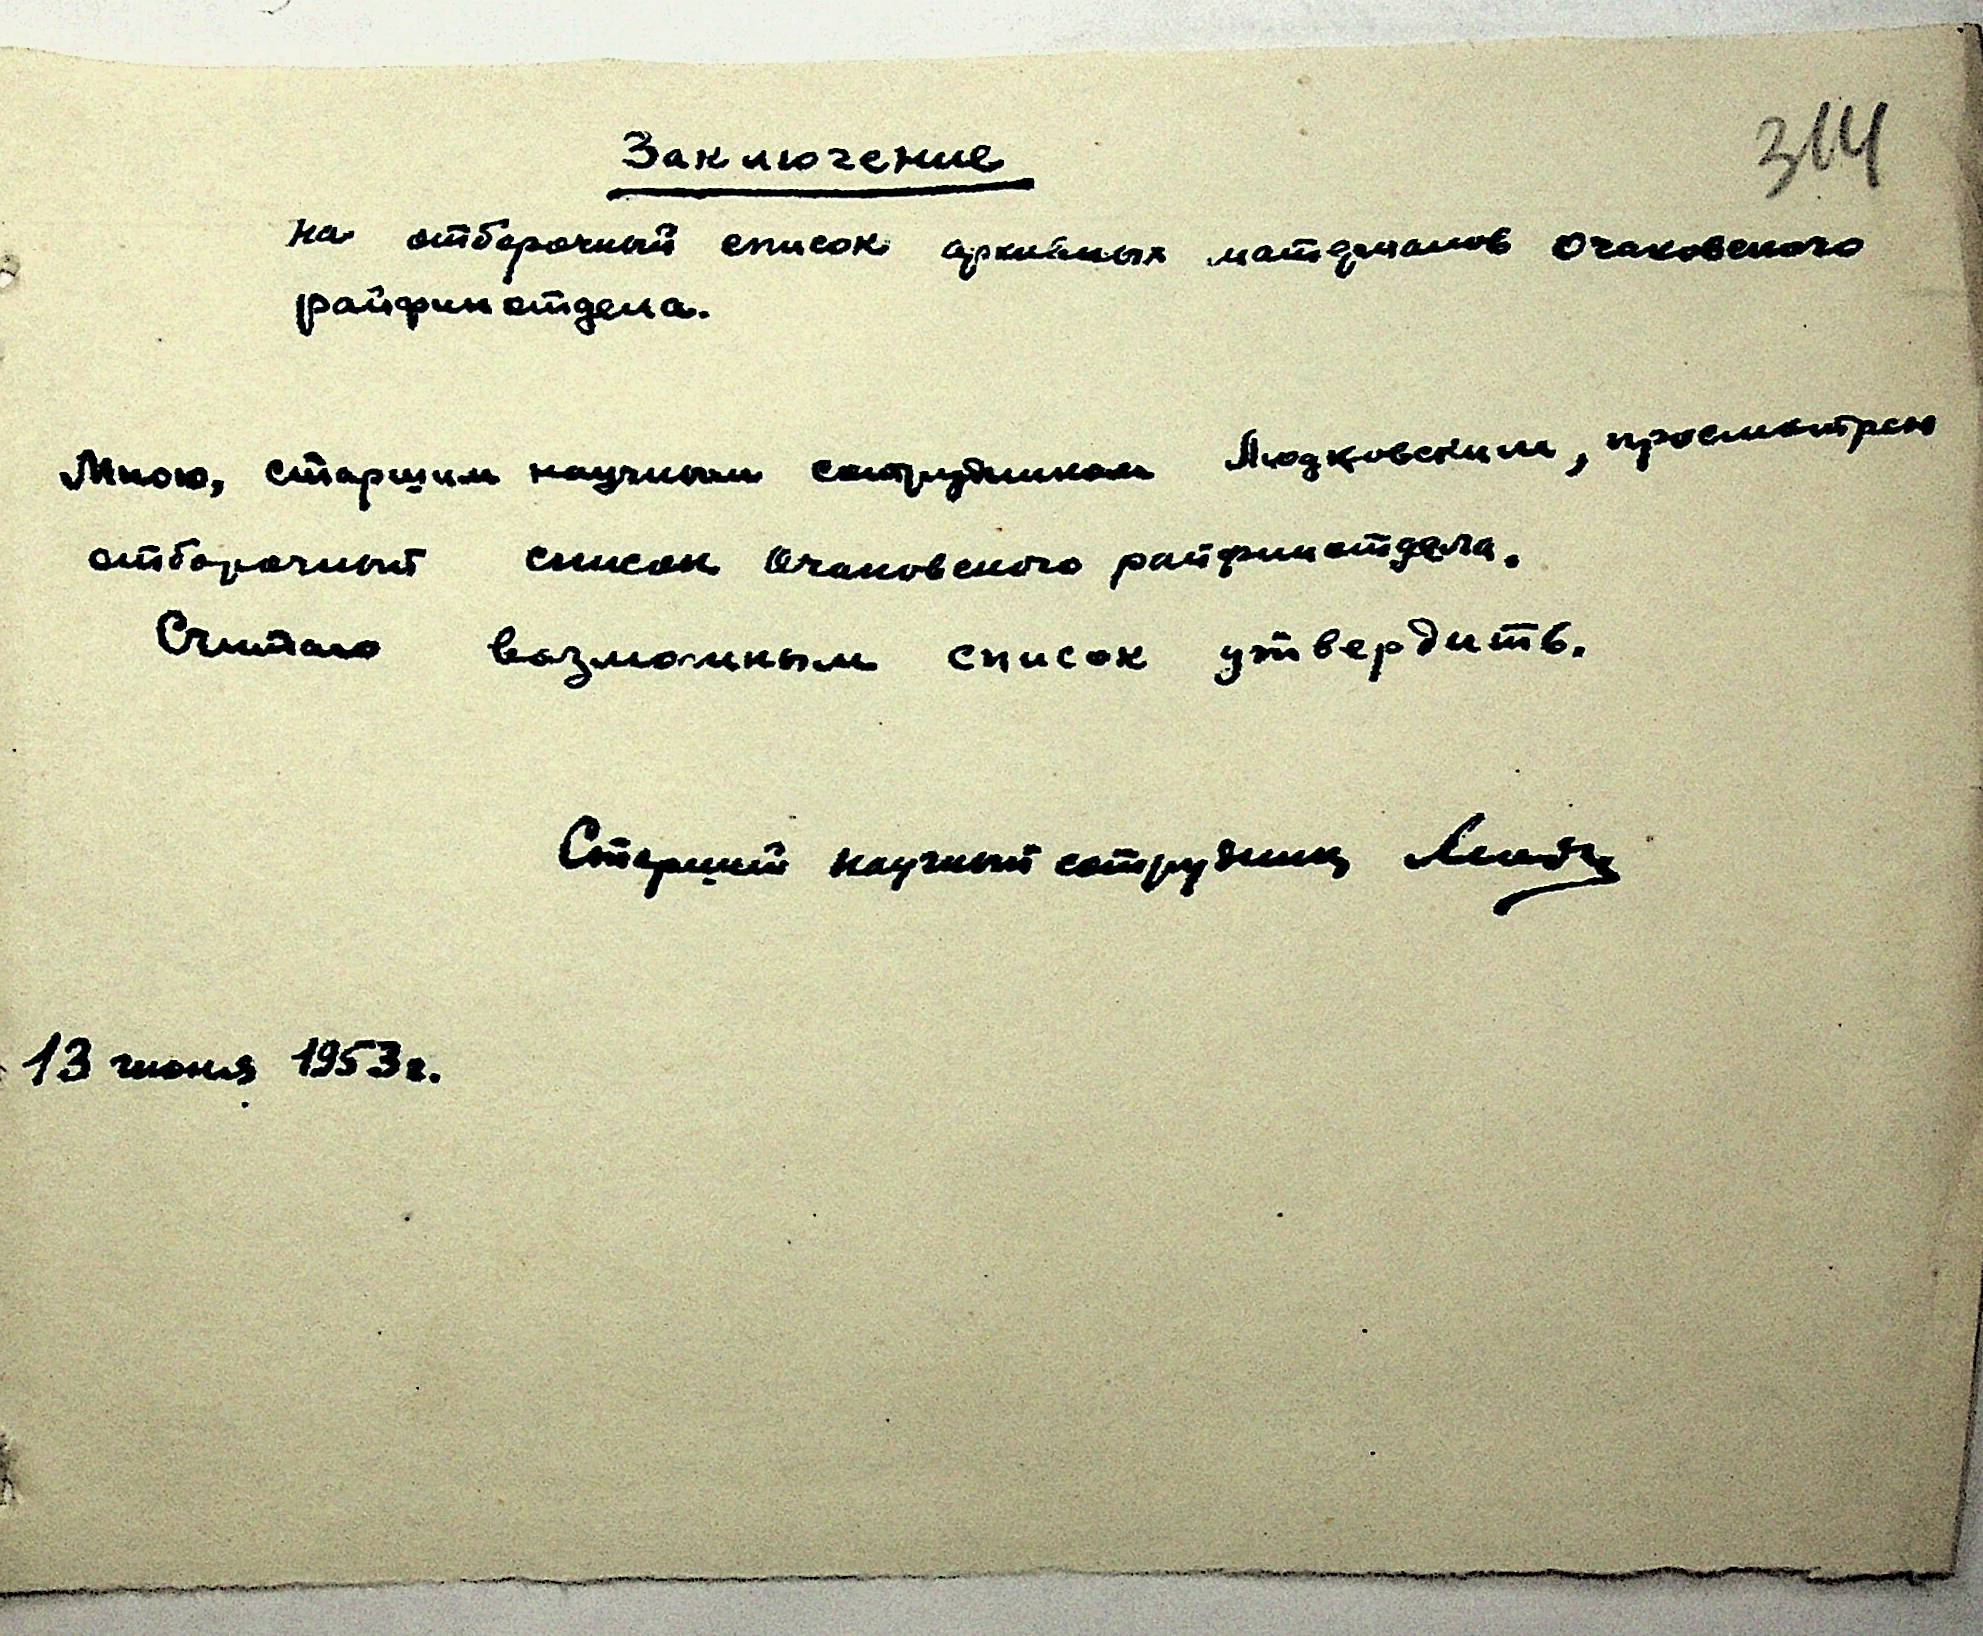 314
Заключение
на отборочный список архивных материалов Очаковского
райфинотдела.
Мною, старшим научным сотрудником Людковским, просмотрен
отборочный список Очаковского райфинотдела.
Считаю возможным список утвердить.
Старший научный сотрудник
13 июня 1953 г.